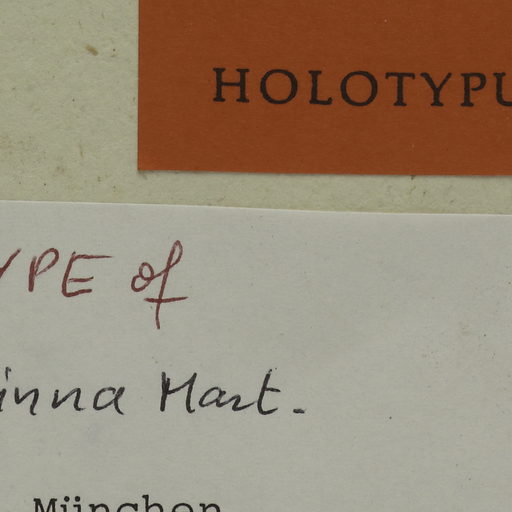 HOLOTYPU
YPE of
inna Mart.
München